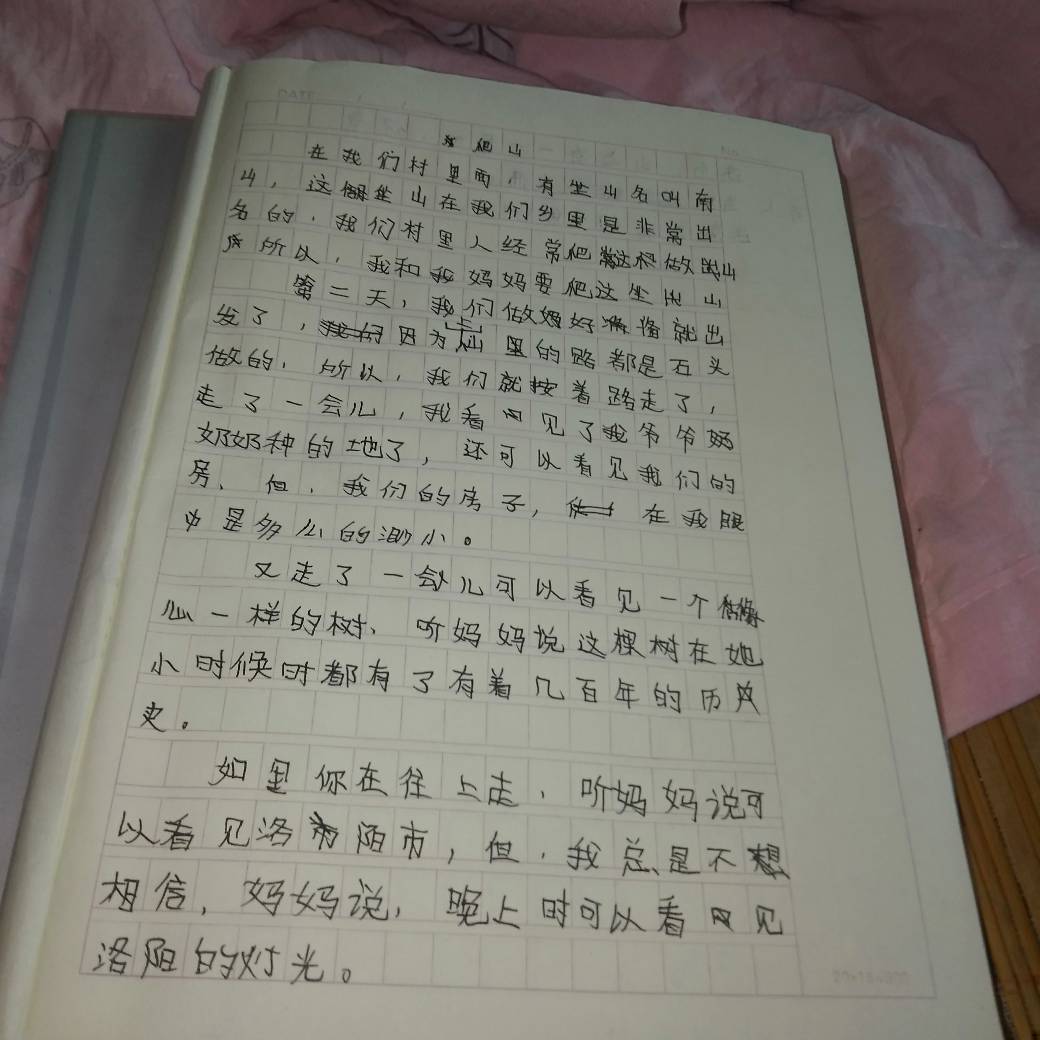 DATE
No
爬山
在我们村里面，有坐山名叫南
山，这坐山在我们乡里是非常出
名的，我们村里人经常把这做出山
所以，我和我妈妈要爬这坐出山
第二天，我们做好准备就出
发了，因为上山里的路都是石头
做的，所以，我们就按着路走了，
走了一会儿，我看见了我爷爷奶
奶奶种的土地了，还可以看见我们的
房、但，我们的房子，在我眼
中是多么的渺小。
又走了一会儿可以看见一个
心一样的树、听妈妈说这棵树在她
小时候时都有了有着几百年的历
史。
如里你在往上走，听妈妈说可
以看见洛陌市，但，我总是不想
相信，妈妈说，晚上时可以看见
洛阳的灯光。